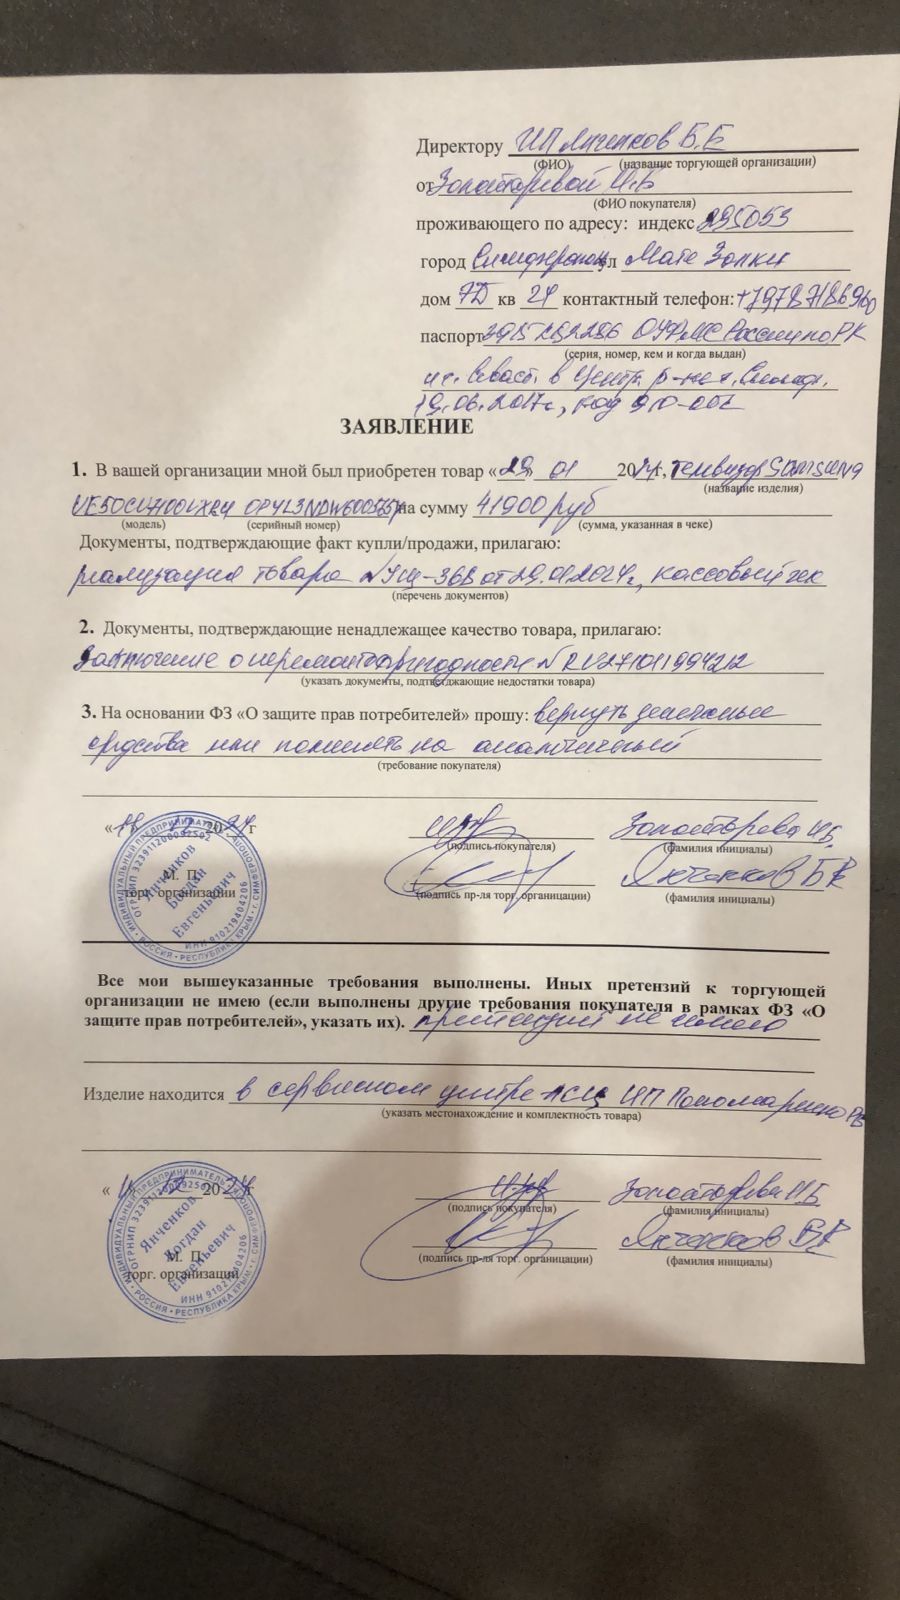 Директору ИП Янченков Б.Е
(ФИО) (название торгующей организации)
от Золотаревой И.Б
(ФИО покупателя)
проживающего по адресу: индекс 295053
город Симферополь ул Мате Залки
дом 7Д кв 24 контактный телефон: +79787186960
паспорт ОУФМС России по РК
(серия, номер, кем и когда выдан)
и г. Севаст. в Центр. р-не г. Симф.
19.06.2017г, код 910-002
ЗАЯВЛЕНИЕ
1. В вашей организации мной был приобретен товар «29» 01 2024г, телевизор SAMSUNG
(название изделия)
на сумму 41900 руб
(модель) (серийный номер) (сумма, указанная в чеке)
Документы, подтверждающие факт купли/продажи, прилагаю:
реализация товара №УИЦ-368 от 29.01.2024г, кассовый чек
(перечень документов)
2. Документы, подтверждающие ненадлежащее качество товара, прилагаю:
Заключение о неремонтопригодности №
(указать документы, подтверждающие недостатки товара)
3. На основании ФЗ «О защите прав потребителей» прошу: вернуть денежные
средства или поменять на аналогичный
(требование покупателя)
« 2024г Золотарева И.Б.
(подпись покупателя) (фамилия инициалы)
М. П. Янченков Б Е
торг. организации (подпись пр-ля торг. органицации) (фамилия инициалы)
ИНДИВИДУАЛЬНЫЙ ПРЕДПРИНИМАТЕЛЬ • РОССИЯ • РЕСПУБЛИКА КРЫМ • г. СИМФЕРОПОЛЬ
ОГРНИП 323911200092502
Янченков
Богдан
Евгеньевич
ИНН 910219404206
Все мои вышеуказанные требования выполнены. Иных претензий к торгующей
организации не имею (если выполнены другие требования покупателя в рамках ФЗ «О
защите прав потребителей», указать их). претензий не имею
Изделие находится в сервисном центре АСЦ ИП Пономаренко РВ
(указать местонахождение и комплектность товара)
« 2024 Золотарева И.Б
(подпись покупателя) (фамилия инициалы)
М. П. Янченков Б Е
торг. организации (подпись пр-ля торг. органицации) (фамилия инициалы)
ИНДИВИДУАЛЬНЫЙ ПРЕДПРИНИМАТЕЛЬ • РОССИЯ • РЕСПУБЛИКА КРЫМ • г. СИМФЕРОПОЛЬ
ОГРНИП 323911200092502
Янченков
Богдан
Евгеньевич
ИНН 910219404206